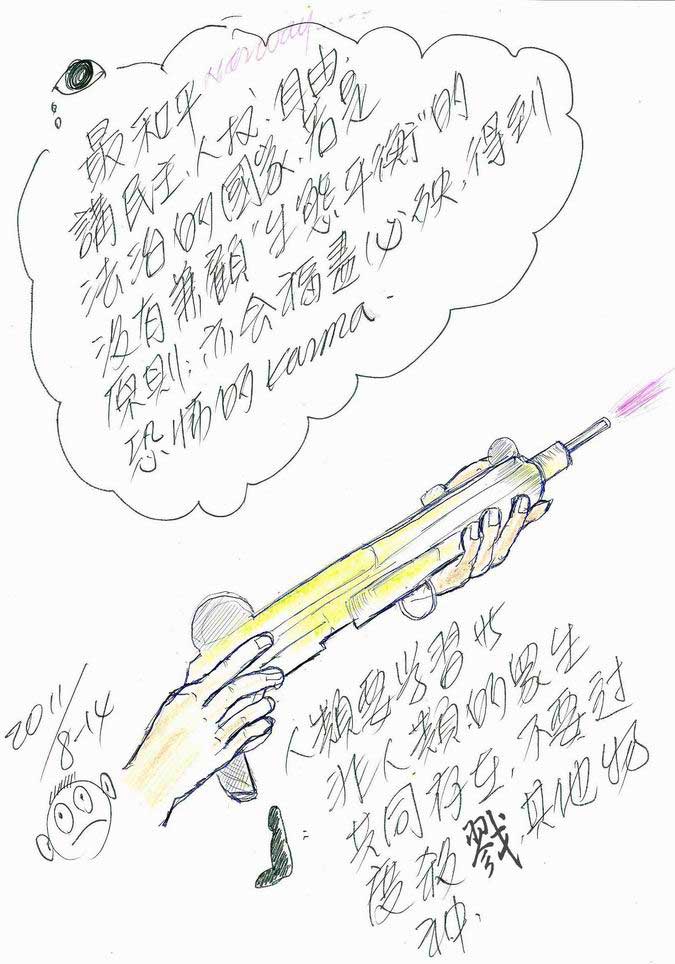 Norway.....
最和平
講民主、人权、自由、
法治的國家、若是
沒有兼顧"生態平衡"的
原則;亦会福盡必殃,得到
恐怖的Karma.
2011/8-14
人類要学習与
非人類的眾生
共同存在,不要过
度殺戮,其他物
种.